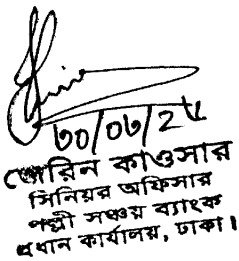 ৩০/০৬/২৫
জেরিন কাওসার
সিনিয়র অফিসার
পল্লী সঞ্চয় ব্যাংক
প্রধান কার্যালয়, ঢাকা।